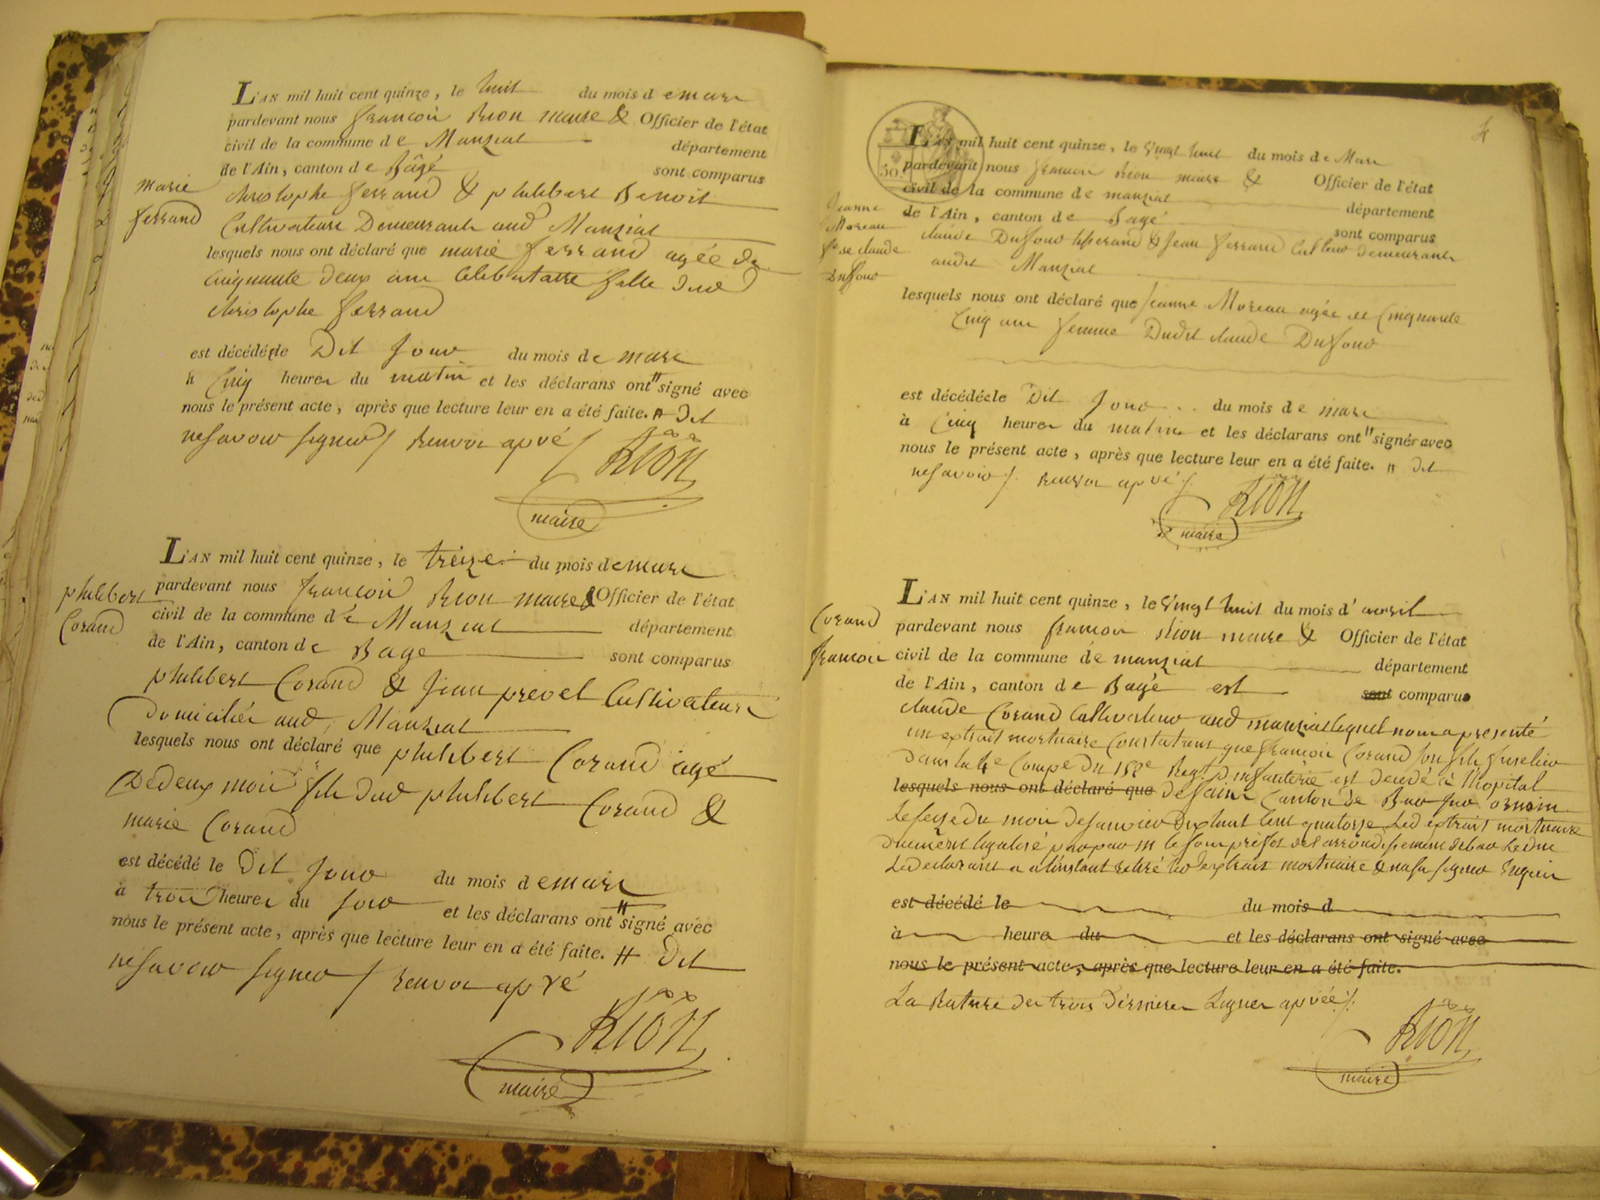 L'AN mil huit cent quinze, le huit du mois de mars
pardevant nous françois Rion maire & Officier de l'état
civil de la commune de Manziat département
de l'Ain, canton de Bâgé sont comparus
marie
ferrand
christophe ferrand & philibert Benoit
Cultivateurs Demeurants aud. Manziat
lesquels nous ont déclaré que marie ferrand agée de
cinquante deux ans celibentaire fille dud
christophe ferrand
est décédée le Dit Jour du mois de mars
à Cinq heures du matin et les déclarans ont " signé avec
nous le présent acte, après que lecture leur en a été faite. # dit
ne savoir signer / Renvoi apvé /
Rion
maire
L'AN mil huit cent quinze, le treize du mois de mars
philibert
Corand
pardevant nous françois Rion maire & Officier de l'état
civil de la commune de Manziat département
de l'Ain, canton de Bagé sont comparus
philibert Corand & Jean prevel Cultivateurs
domiciliés aud. Manziat
lesquels nous ont déclaré que philibert Corand agé
De deux mois fils dud philibert Corand &
marie Corand
est décédé le Dit Jour du mois de mars
à trois heures du soir et les déclarans ont " signé avec
nous le présent acte, après que lecture leur en a été faite. # Dit
ne savoir signer / Renvoi apvé
Rion
maire
L'AN mil huit cent quinze, le vingt huit du mois de Mars
pardevant nous francois Rion maire & Officier de l'état
civil de la commune de manziat département
de l'Ain, canton de Bagé sont comparus
Jeanne
Moreau
fe de claude
Duffour
claude Duffour & Jean ferrand Cultiv demeurants
audit Manziat
lesquels nous ont déclaré que Jeanne Moreau agée de Cinquante
Cinq ans femme Dudit claude Duffour
est décédée le Dit Jour du mois de mars
à Cinq heures du matin et les déclarans ont " signé avec
nous le présent acte, après que lecture leur en a été faite. " dit
ne savoir /. Renvoi apvé /.
Rion
maire
L'AN mil huit cent quinze, le vingt huit du mois d'avril
Corand
francois
pardevant nous francois Rion maire & Officier de l'état
civil de la commune de manziat département
de l'Ain, canton de Bagé est sont comparus
claude Corand Cultivateur aud manziat lequel nous a presenté
un extrait mortuaire Constatant que françois Corand son fils fuselier
dans la 4e Compe du 152e Regt D'infanterie est decedé à l'hopital
lesquels nous ont déclaré que de Canton de Bar sur ornain
le seize du mois de Janvier dix huit cent quatorze Led extrait mortuaire
duement legalisé par m le sous préfet de l'arrondissement de bar Le duc
Le declarant a à l'instant retiré led extrait mortuaire & na su signer
est décédé le du mois d
à heure du et les déclarans ont signé avec
nous le présent acte, après que lecture leur en a été faite.
La Rature des trois Dernieres Lignes apvée /.
Rion
maire